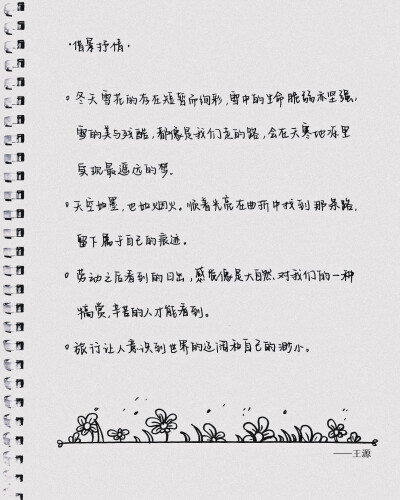 ·借景抒情·
。冬天雪花的存在短暂而绚彩，雪中的生命脆弱亦坚强，
雪的美与残酷，都像是我们走的路，会在天寒地冻里
实现最遥远的梦。
。天空如墨，也如烟火。顺着光亮在曲折中找到那条路，
留下属于自己的痕迹。
。劳动之后看到的日出，感觉像是大自然对我们的一种
犒赏，辛苦的人才能看到。
。旅行让人意识到世界的辽阔和自己的渺小。
——王源